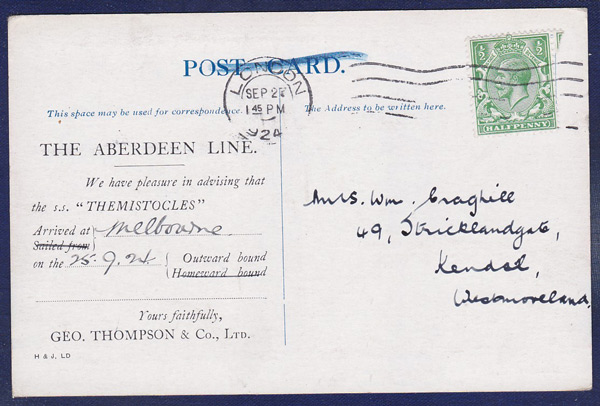 POST CARD.
LONDON
SEP 25
1 45 PM
1924
½ ½
HALFPENNY
This space may be used for correspondence.
The Address to be written here.
THE ABERDEEN LINE.
We have pleasure in advising that
the s.s. "THEMISTOCLES"
Arrived at Melbourne.
Sailed from
on the 25.9.24 Outward bound
Homeward bound
Yours faithfully,
GEO. THOMPSON & Co., LTD.
H & J, LD
Mrs. Wm. Craghill
49, Stricklandgate,
Kendal,
Westmoreland.